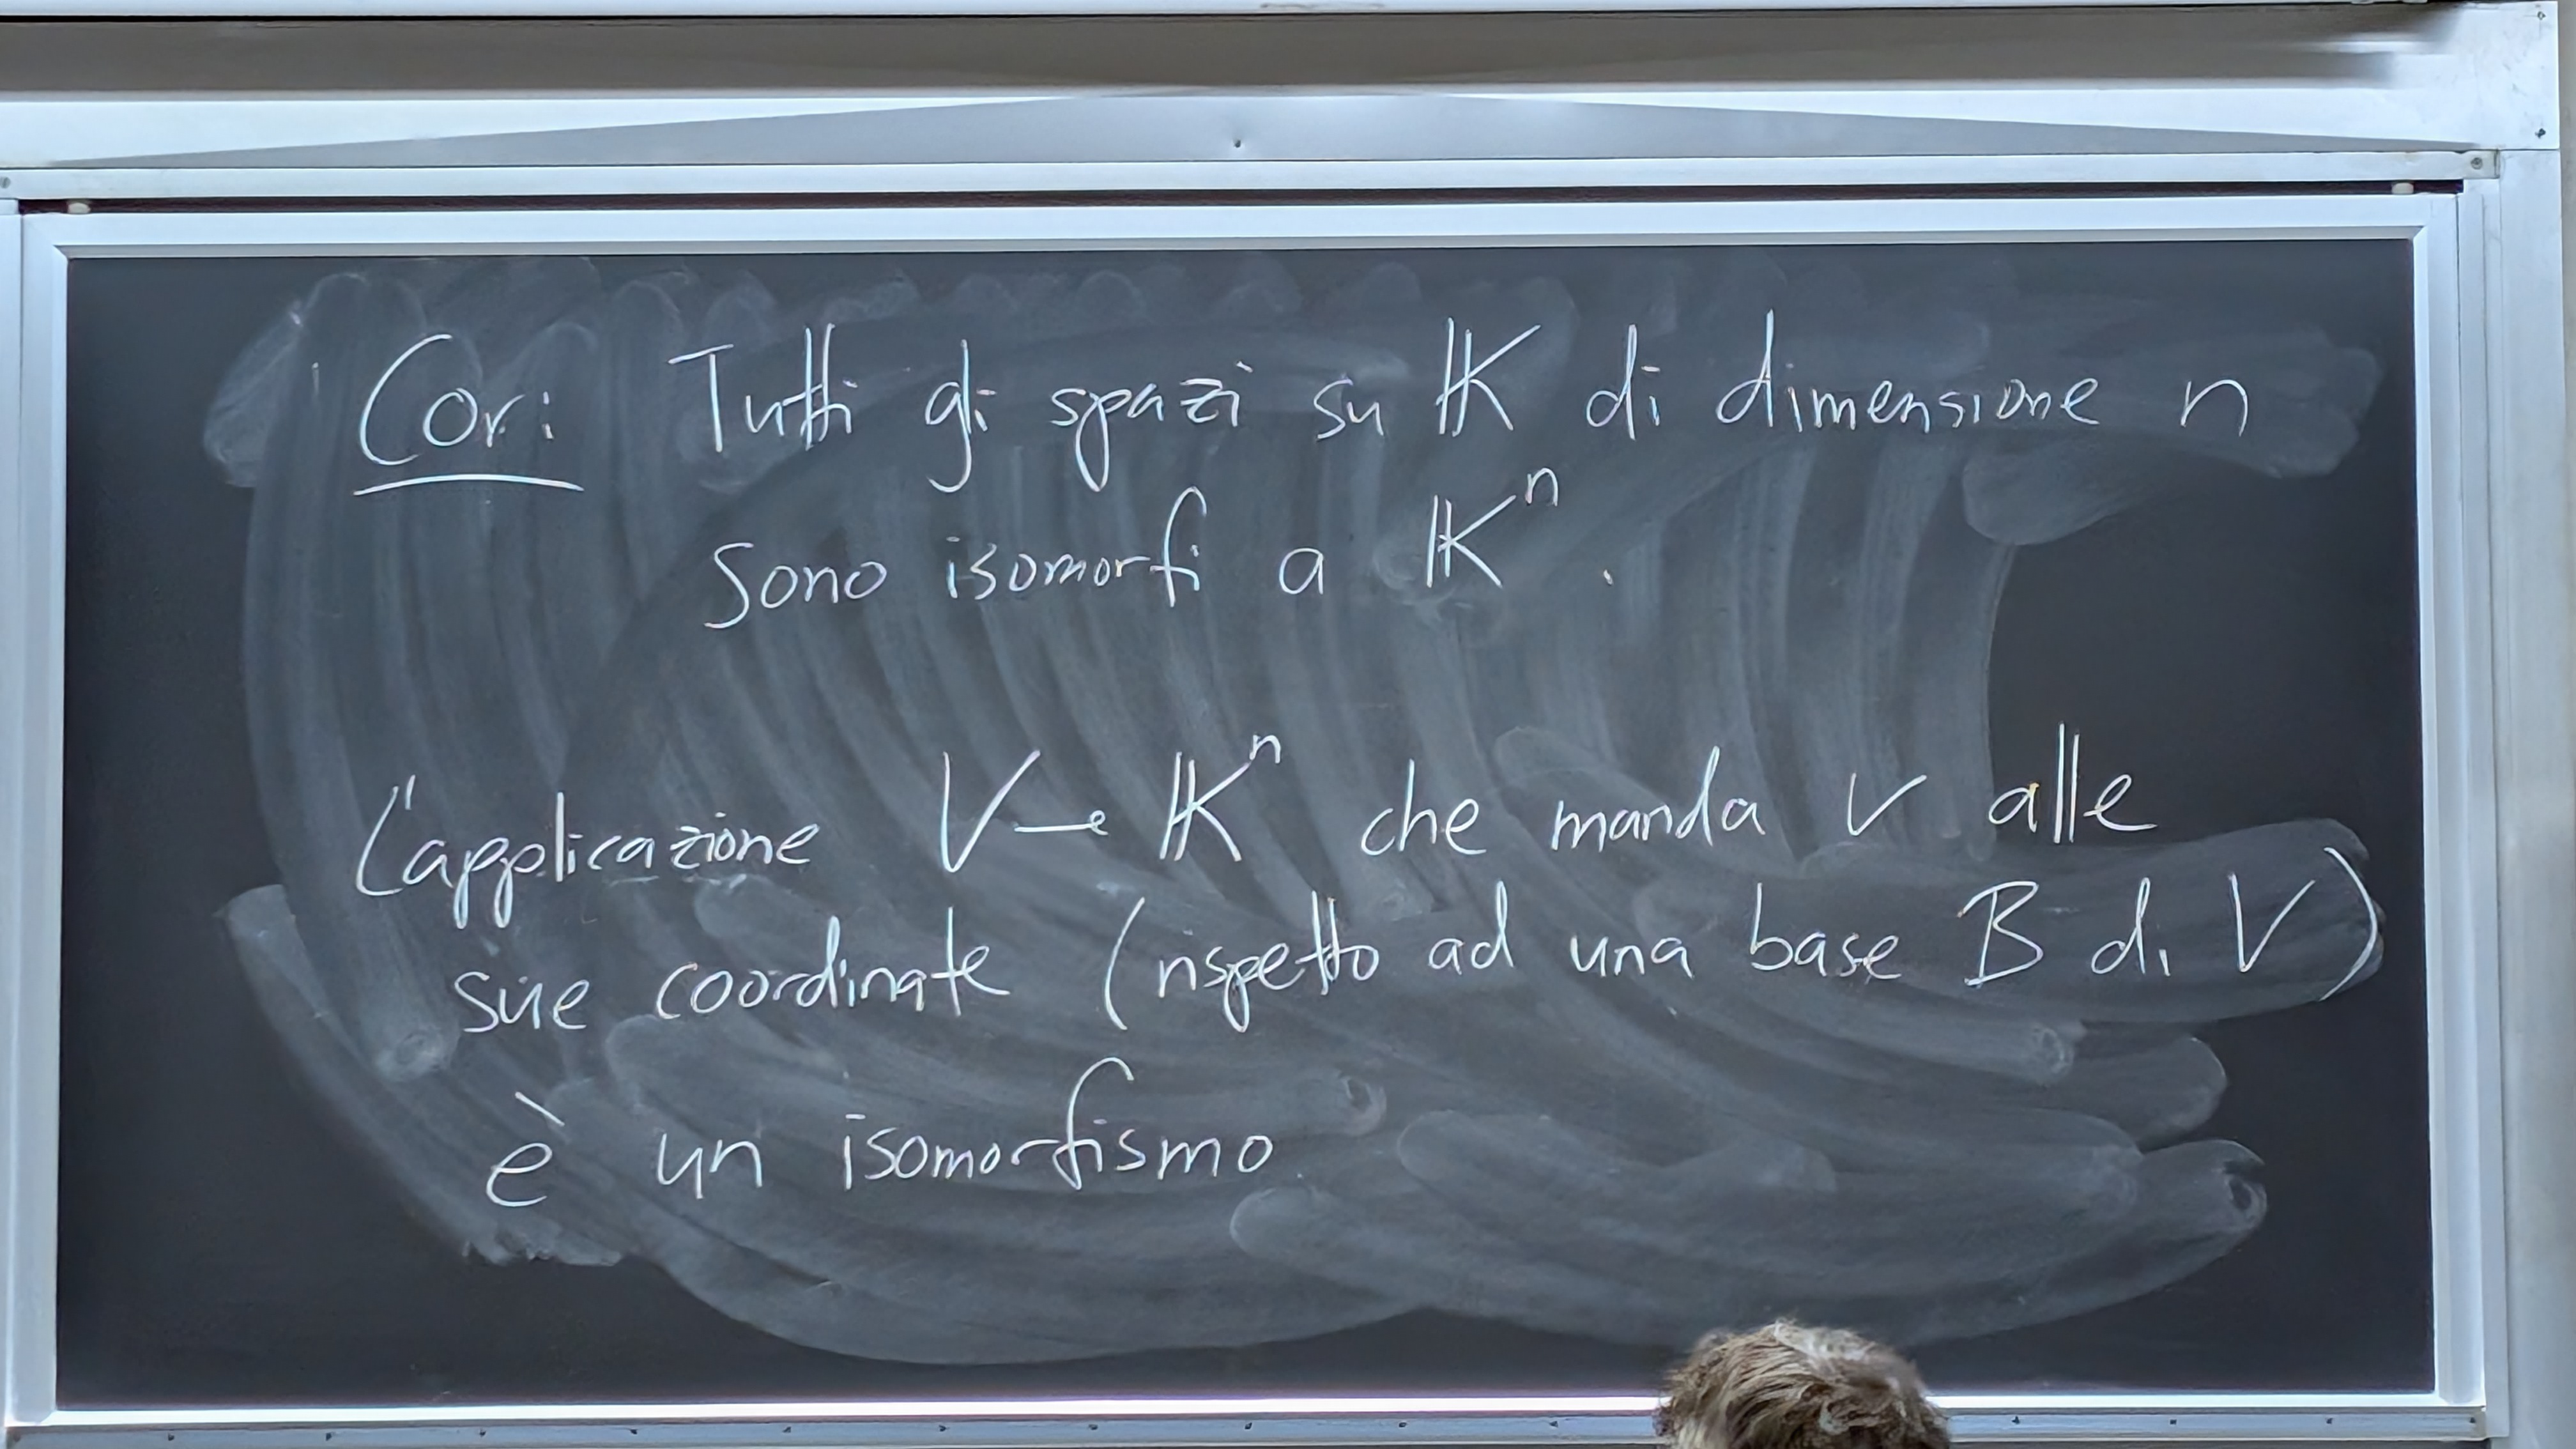 Cor: Tutti gli spazi su 𝕂 di dimensione n
sono isomorfi a 𝕂ⁿ.
L'applicazione V → 𝕂ⁿ che manda v alle
sue coordinate (rispetto ad una base B di V)
è un isomorfismo